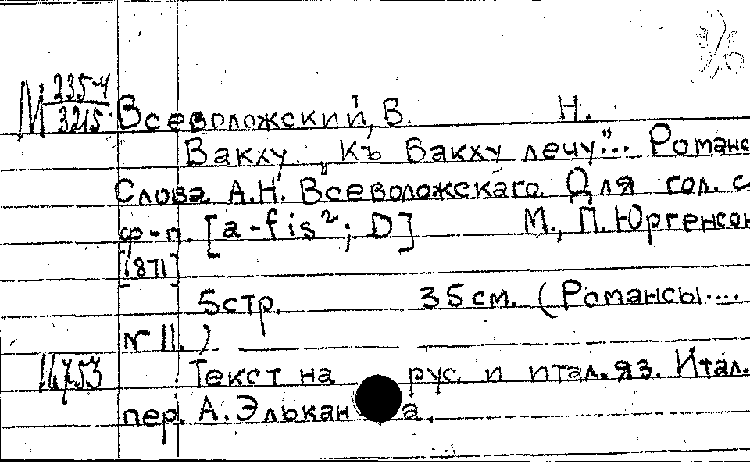 М 235-4/3215 Всеволожский, В. Н.
Вакху. "Къ Вакху лечу"... Романс
Слова А.Н. Всеволожскаго. Для гол. с
ф-п. [a-fis²; D] М., П. Юргенсон
[1871]
5 стр. 35 см. (Романсы...
№ 11.)
14753 Текст на рус. и итал. яз. Итал.
пер. А. Элькана.